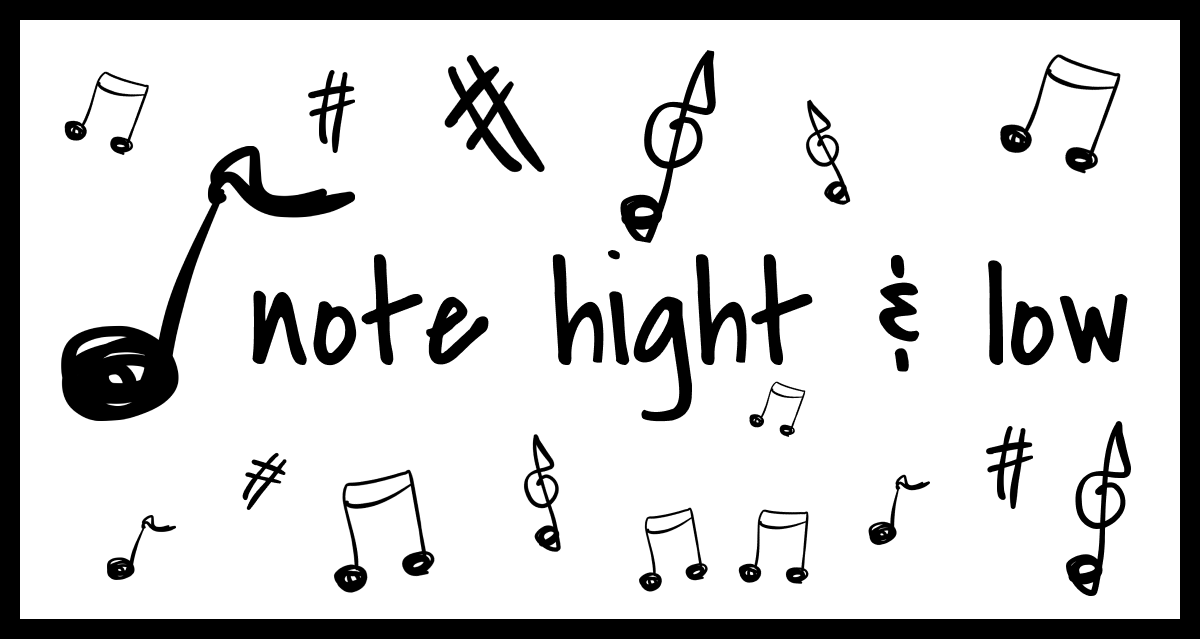 note hight & low